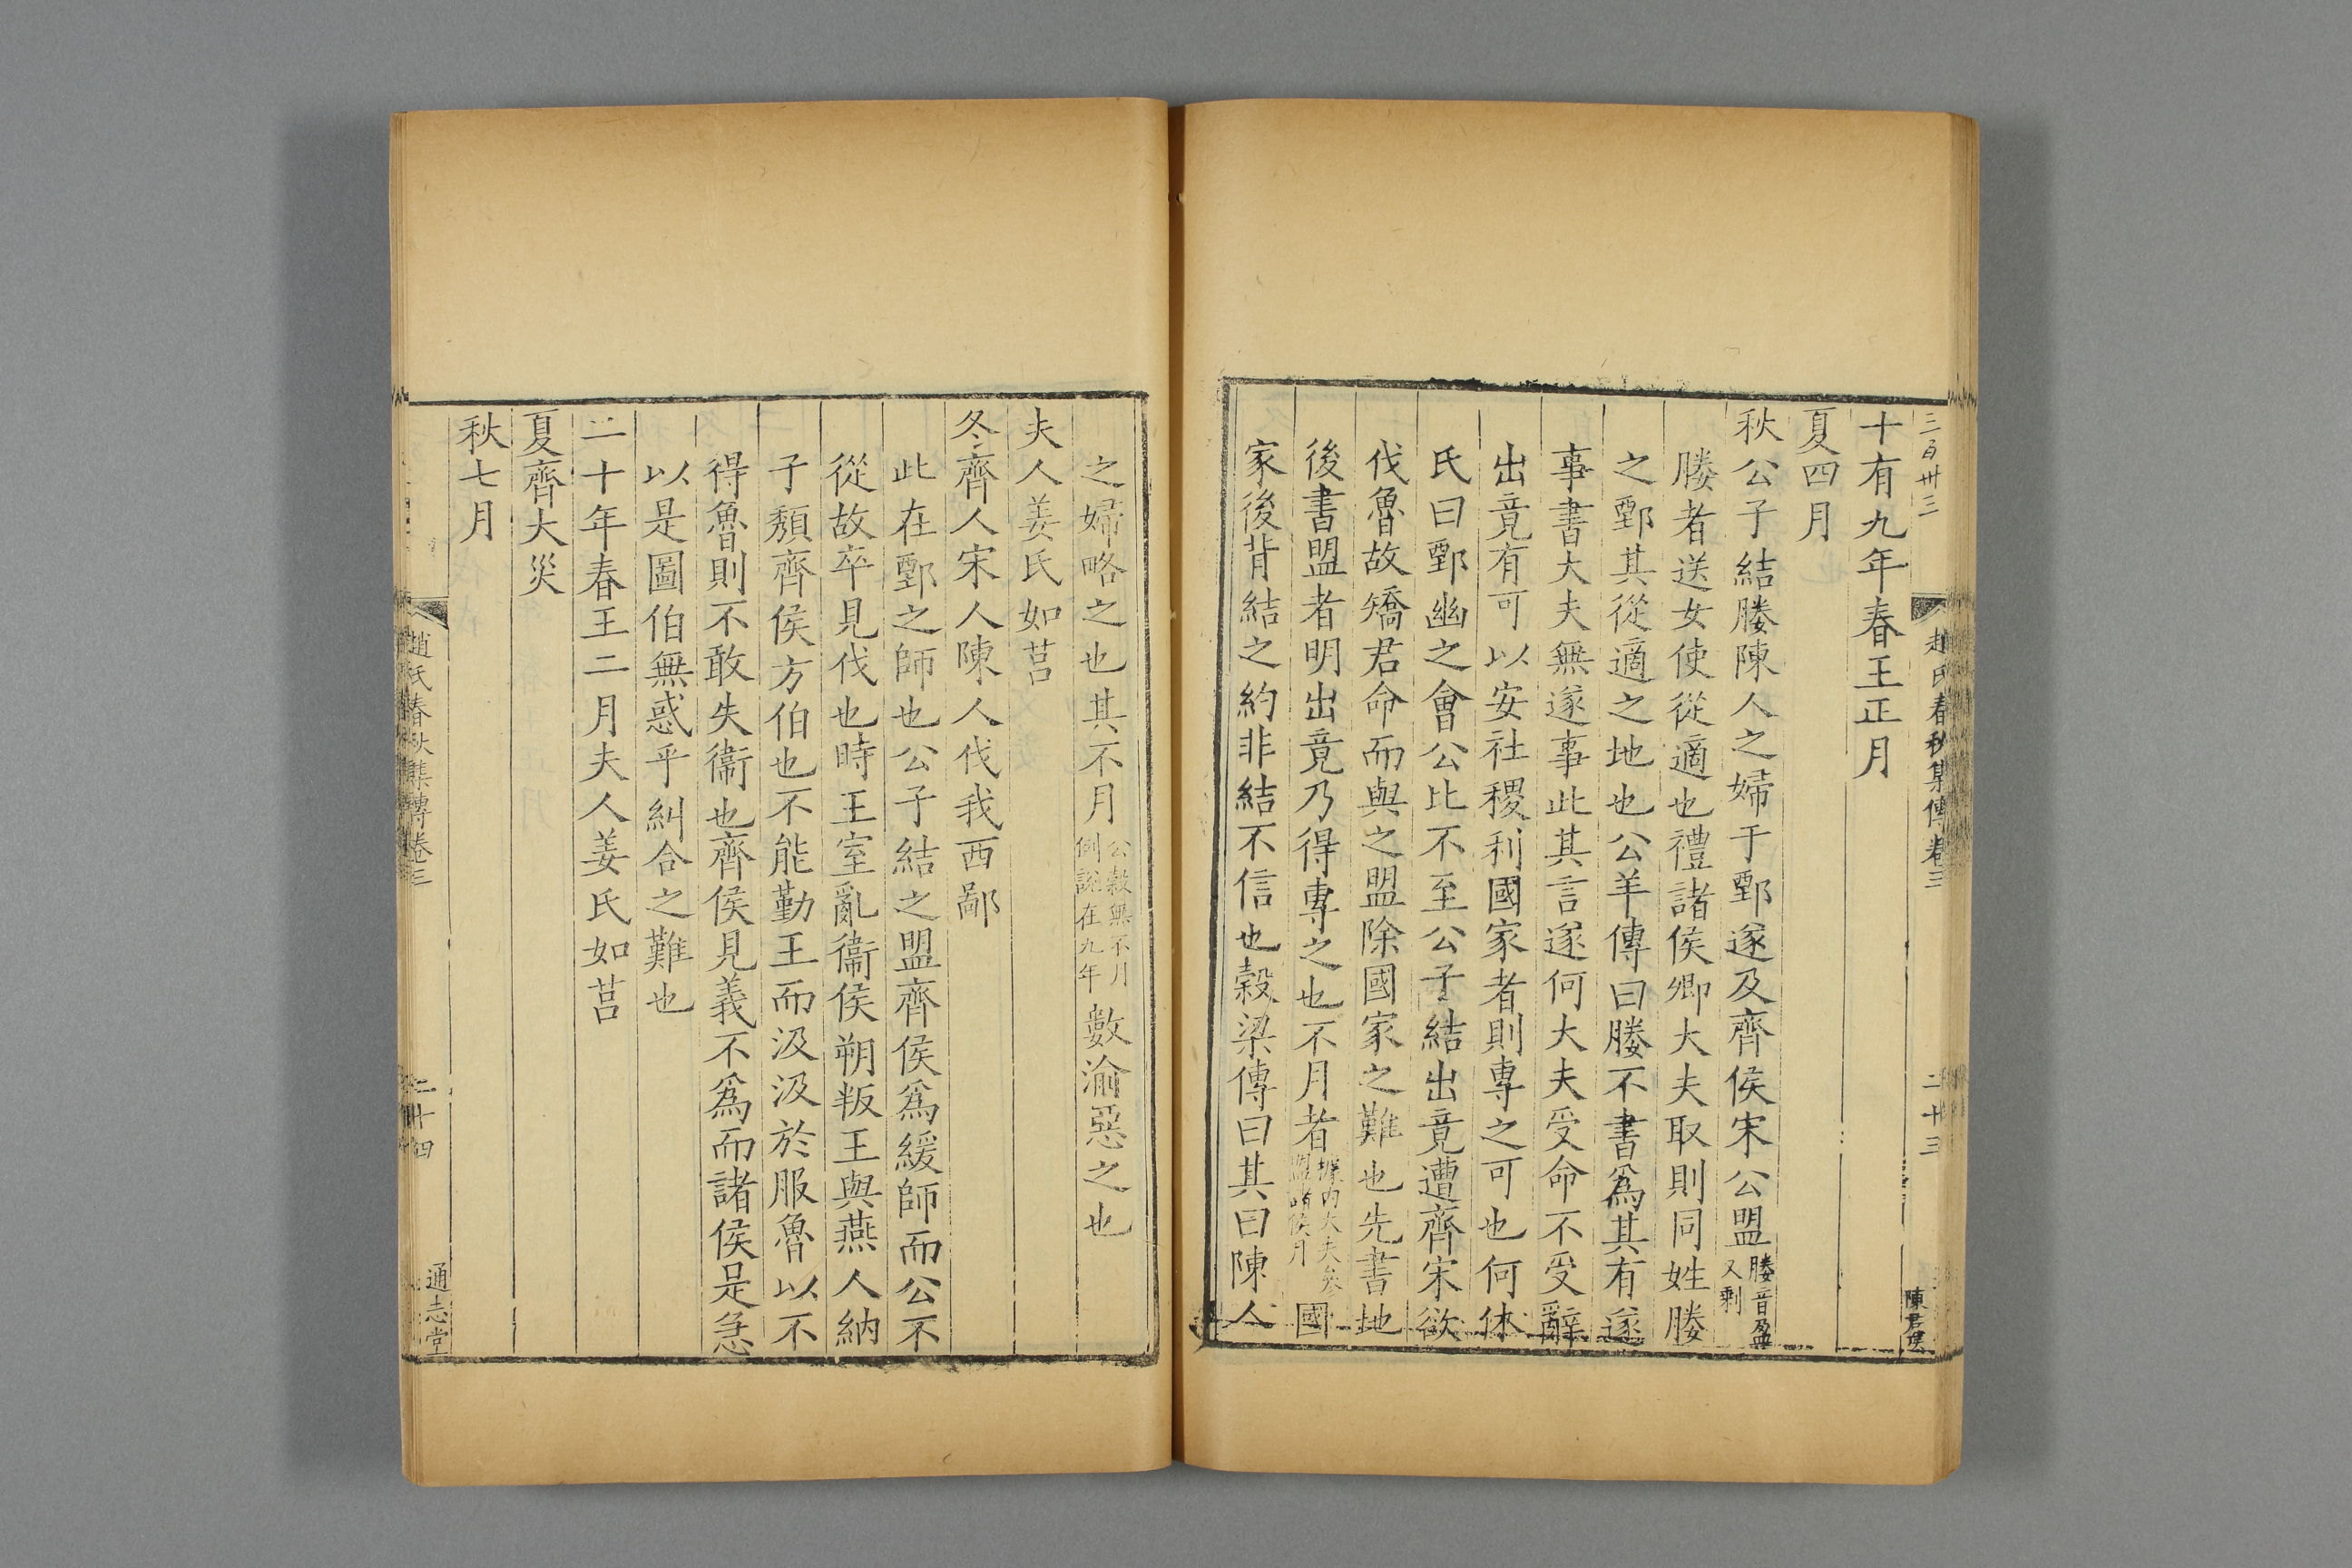 三百卅三
趙氏春秋集傳卷三
二十三
陳君侯
十有九年春王正月
夏四月
秋公子結媵陳人之婦于鄄遂及齊侯宋公盟媵音孕
又剩
媵者送女使從適也禮諸侯卿大夫取則同姓媵
之鄄其從適之地也公羊傳曰媵不書爲其有遂
事書大夫無遂事此其言遂何大夫受命不受辭
出竟有可以安社稷利國家者則專之可也何休
氏曰鄄幽之會公比不至公子結出竟遭齊宋欲
伐魯故矯君命而與之盟除國家之難也先書地
後書盟者明出竟乃得專之也不月者據內大夫
盟諸侯月國
家後背結之約非結不信也穀梁傳曰其曰陳人
之婦略之也其不月公穀無不月
例說在九年數渝惡之也
夫人姜氏如莒
冬齊人宋人陳人伐我西鄙
此在鄄之師也公子結之盟齊侯爲緩師而公不
從故卒見伐也時王室亂衞侯朔叛王與燕人納
子頹齊侯方伯也不能勤王而汲汲於服魯以不
得魯則不敢失衞也齊侯見義不爲而諸侯是急
以是圖伯無惑乎糾合之難也
二十年春王二月夫人姜氏如莒
夏齊大災
秋七月
趙氏春秋集傳卷三
二十四
通志堂